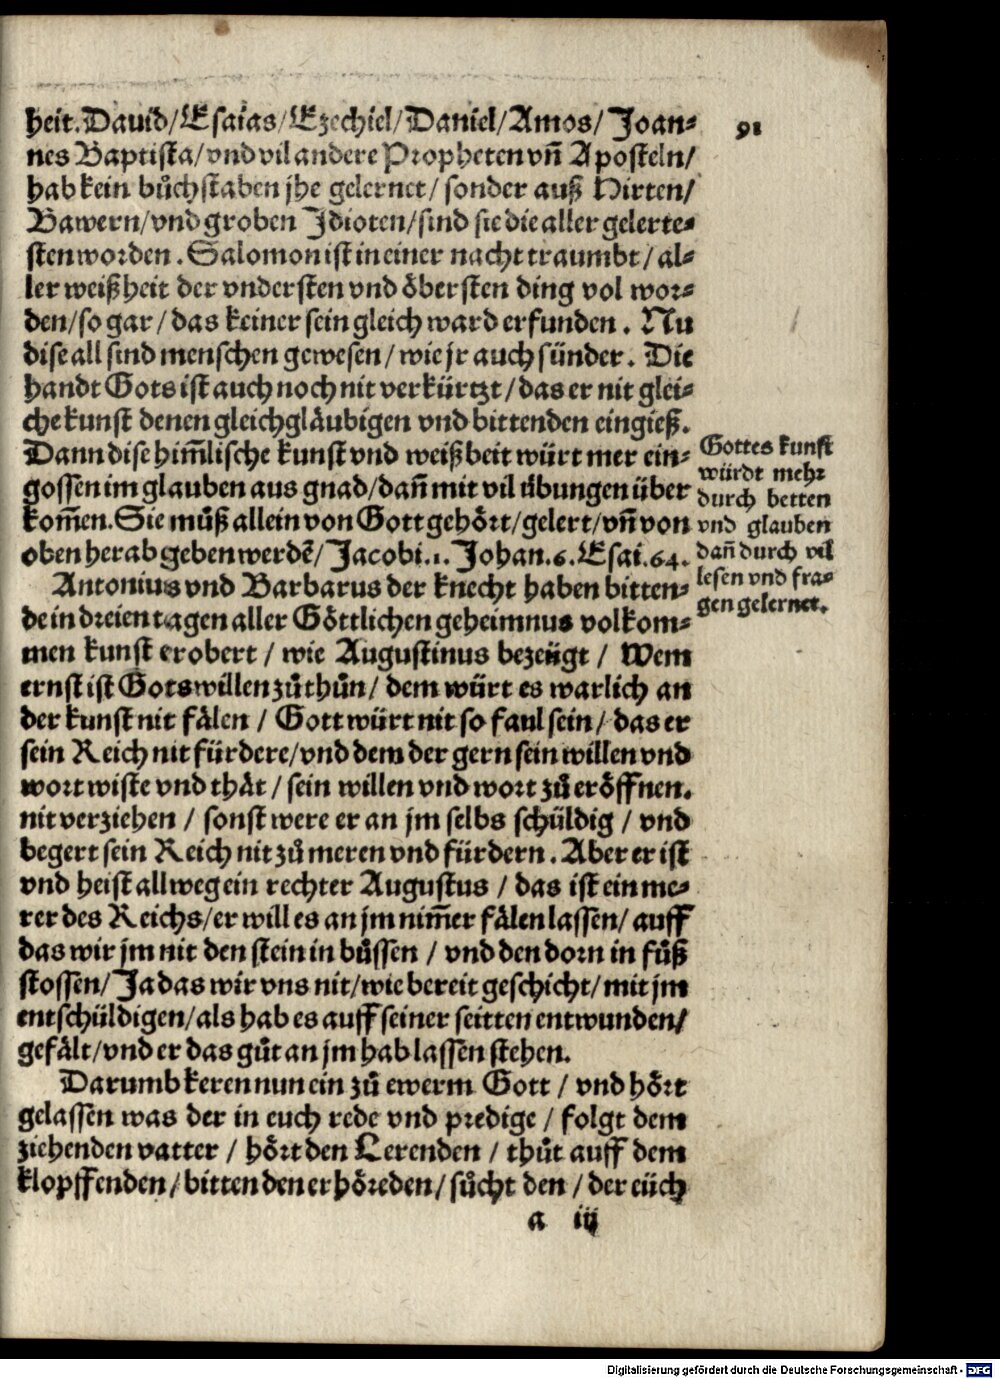 91
heit. Dauid/Esaias/Ezechiel/Daniel/Amos/Joan⸗
nes Baptista/vnd vil andere Propheten vñ Aposteln/
hab kein bůchstaben jhe gelernet/sonder auß Hirten/
Bawern/vnd groben Idioten/sind sie die aller gelerte⸗
sten worden. Salomon ist in einer nacht traumbt/al⸗
ler weißheit der vndersten vnd öbersten ding vol wor⸗
den/so gar/das keiner sein gleich ward erfunden. Nu
dise all sind menschen gewesen/wie jr auch sünder. Die
handt Gots ist auch noch nit verkürtzt/das er nit glei⸗
che kunst denen gleichgläubigen vnd bittenden eingieß.
Dann dise him̃lische kunst vnd weißheit würt mer ein⸗
gossen im glauben aus gnad/dañ mit vil übungen über
kom̃en. Sie můß allein von Gott gehört/gelert/vñ von
oben herab geben werdẽ/Jacobi.1. Johan.6. Esai.64.
Antonius vnd Barbarus der knecht haben bitten⸗
de in dreien tagen aller Göttlichen geheimnus volkom⸗
men kunst erobert/wie Augustinus bezeügt/Wem
ernst ist Gots willen zů thůn/dem würt es warlich an
der kunst nit fälen/Gott würt nit so faul sein/das er
sein Reich nit fürdere/vnd dem der gern sein willen vnd
wort wiste vnd thät/sein willen vnd wort zů eröffnen.
nit verziehen/sonst were er an jm selbs schüldig/vnd
begert sein Reich nit zů meren vnd fürdern. Aber er ist
vnd heist allweg ein rechter Augustus/das ist ein me⸗
rer des Reichs/er will es an jm nim̃er fälen lassen/auff
das wir jm nit den stein in bůssen/vnd den dorn in fůß
stossen/Ja das wir vns nit/wie bereit geschicht/mit jm
entschüldigen/als hab es auff seiner seitten entwunden/
gefält/vnd er das gůt an jm hab lassen stehen.
Darumb keren nun ein zů ewerm Gott/vnd hört
gelassen was der in euch rede vnd predige/folgt dem
ziehenden vatter/hört den Lerenden/thůt auff dem
klopffenden/bitten den erhöreden/sůcht den/der eüch
a iij
Gottes kunst
würdt mehr
durch betten
vnd glauben
dañ durch vil
lesen vnd fra⸗
gen gelernet.
Digitalisierung gefördert durch die Deutsche Forschungsgemeinschaft - DFG